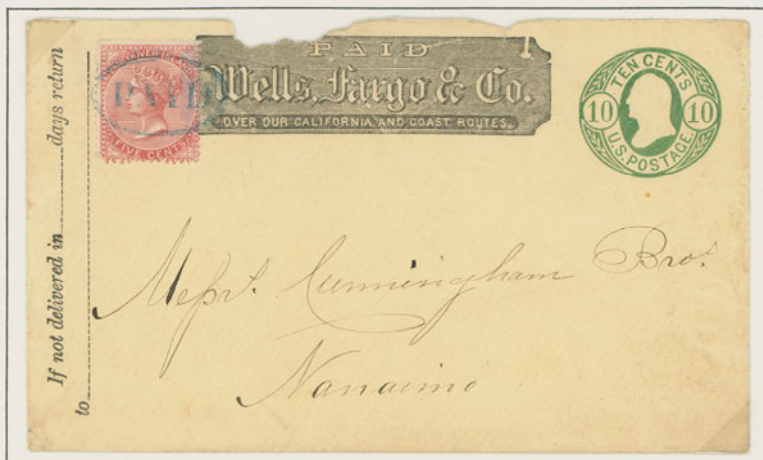 If not delivered in ............ days return
to
VANCOUVER ISLAND
FIVE CENTS
PAID
PAID
Wells, Fargo & Co.
OVER OUR CALIFORNIA AND COAST ROUTES.
TEN CENTS
10 10
U.S. POSTAGE
Messrs. Cunningham Bros.
Nanaimo